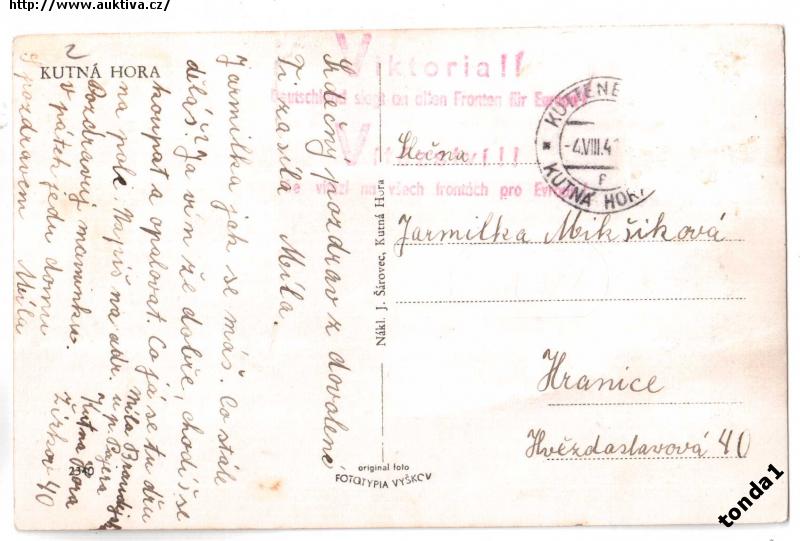 http://www.auktiva.cz/
KUTNÁ HORA
Viktoria!!
Deutschland siegt an allen Fronten für Europa
vítězí na všech frontách pro Evropu
KUTNÁ HORA
-4.VIII.41
Slečna
Jarmilka Mikšíková
Hranice
Hvězdaslavová 40
Nákl. J. Šárovec, Kutná Hora
original foto
FOTOTYPIA VYŠKOV
2340
Srdečný pozdrav z dovolené
Ti zasílá Míla.
Jarmilka jak se máš. Co stále
děláš? Já vím že dobře, chodíš se
koupat a opalovat. Co já se tu dřu
na pole. Napiš na adr. Míla
u p. Pajera
Kutná Hora
Žižkov 40
Pozdravuj maminku.
V pátek jedu domu
S pozdravem Míla
tonda1